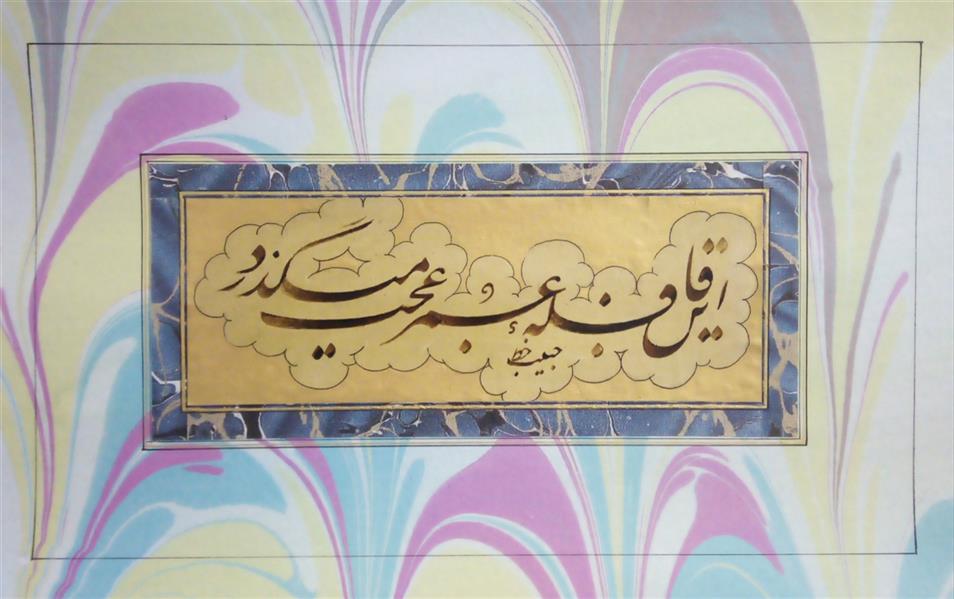 این قافله عمر عجب میگذرد
حبیب خط